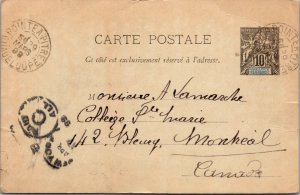 CARTE POSTALE
Ce côté est exclusivement réservé à l'adresse.
10
Monsieur A Lamarche
Collège Ste Marie
142 Bleury, Montréal
Canada